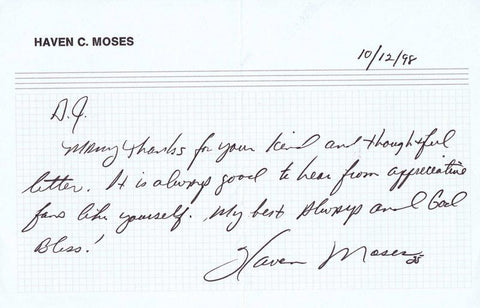 HAVEN C. MOSES
10/12/98
D.J.
Many thanks for your kind and thoughtful
letter. It is always good to hear from appreciative
fans like yourself. My best Always and God
Bless!
Haven Moses
25